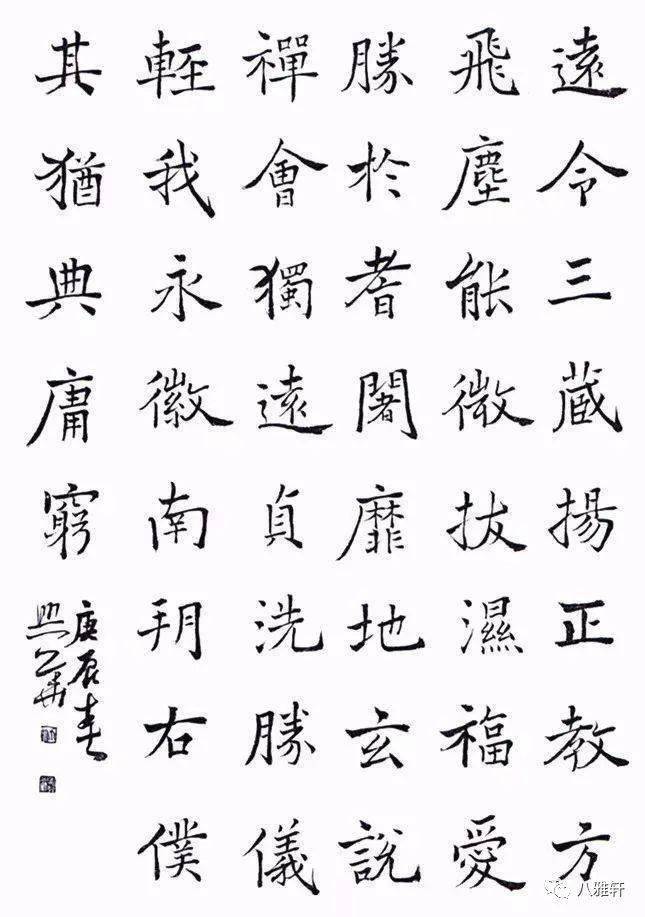 遠令三蔵揚正教方
飛塵能微拔濕福愛
勝於者闍靡地玄說
禪會獨遠貞洗勝儀
輕我永徽南玥右僕
其猶典庸窮
庚辰春
八雅轩